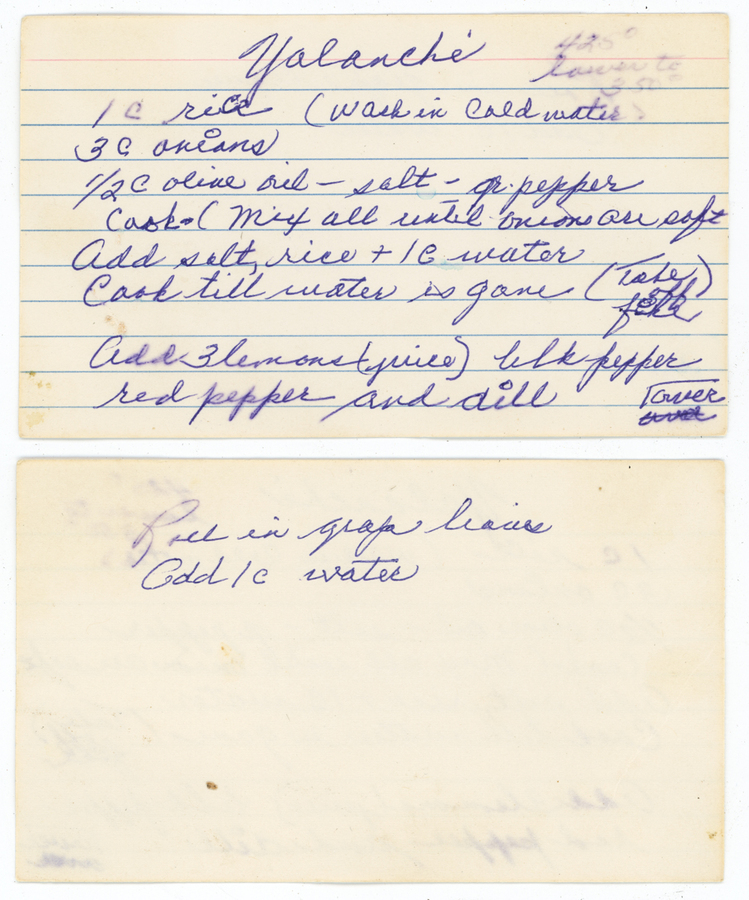 Yalanché
425°
lower to
350°
1 C rice (wash in cold water)
3 C onions
1/2 C olive oil - salt - gr. pepper
Cook - (Mix all until onions are soft
Add salt, rice + 1 C water
Cook till water is gone (Take off
fire)
Add 3 lemons (juice) blk pepper
red pepper and dill
over
Roll in grap leaves
Add 1 c water